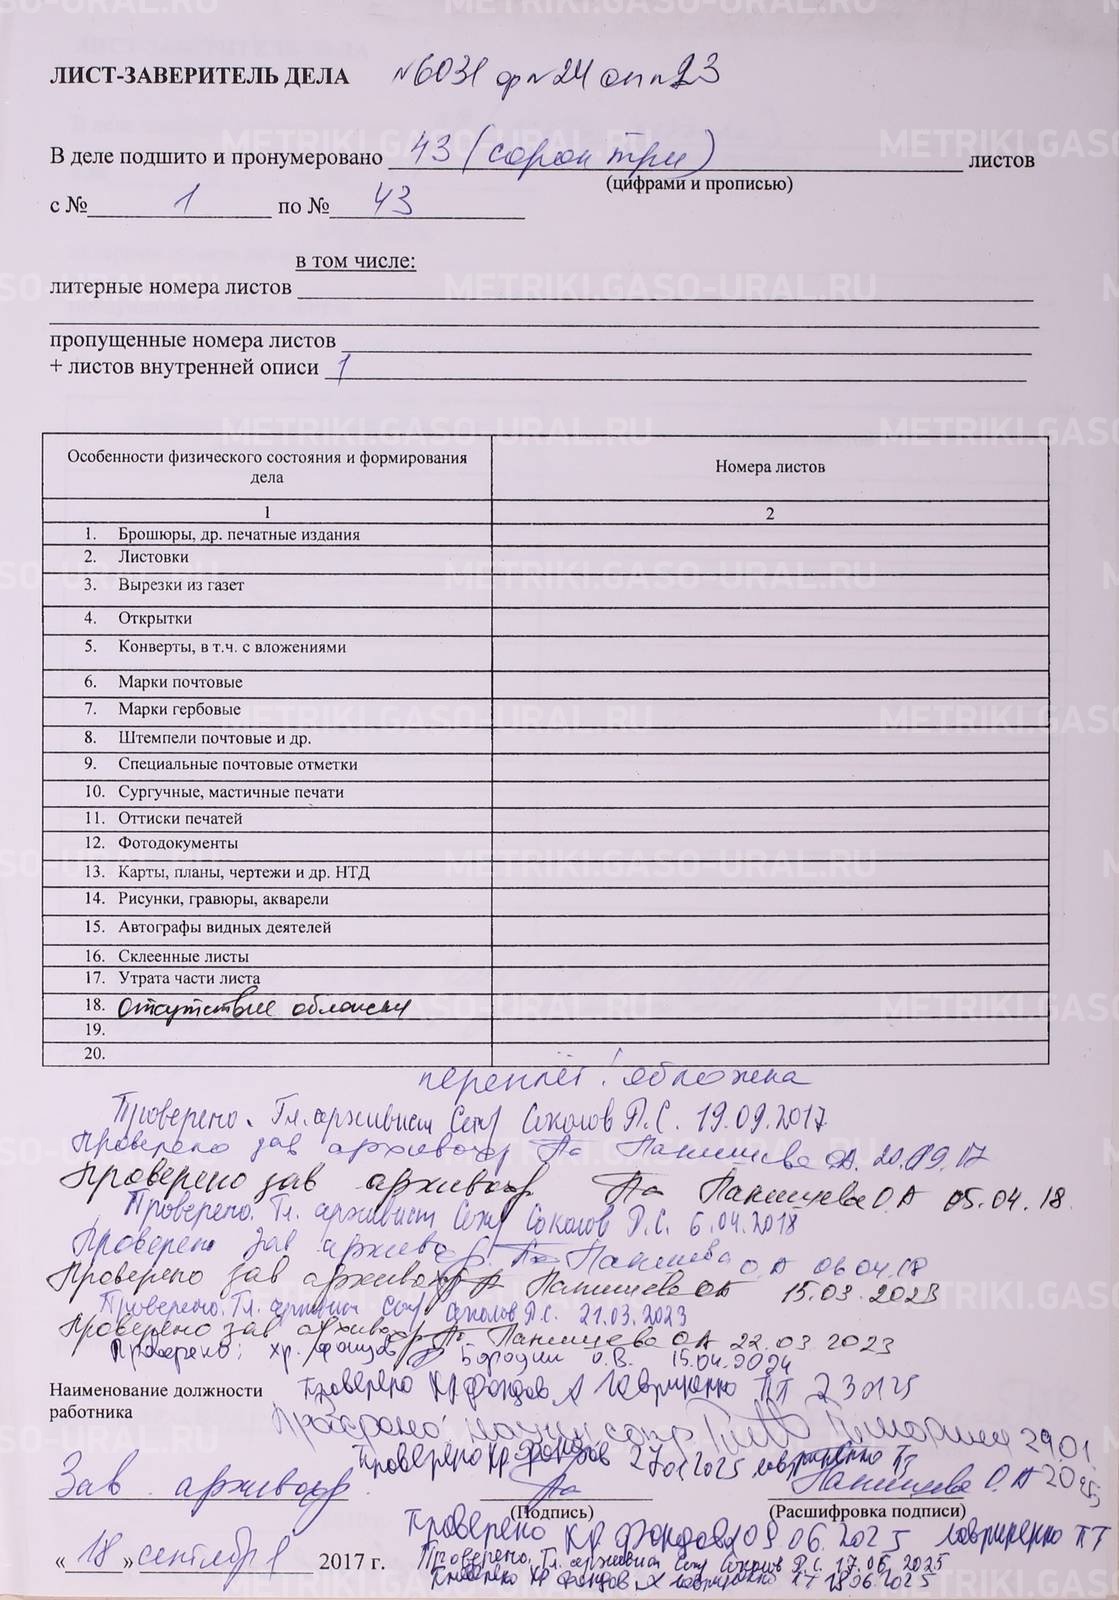 ЛИСТ-ЗАВЕРИТЕЛЬ ДЕЛА №6031 ф№24 оп№23
В деле подшито и пронумеровано 43 (сорок три) листов
(цифрами и прописью)
с № 1 по № 43
в том числе:
литерные номера листов
пропущенные номера листов
+ листов внутренней описи 1
Особенности физического состояния и формирования дела Номера листов
1 2
1. Брошюры, др. печатные издания
2. Листовки
3. Вырезки из газет
4. Открытки
5. Конверты, в т.ч. с вложениями
6. Марки почтовые
7. Марки гербовые
8. Штемпели почтовые и др.
9. Специальные почтовые отметки
10. Сургучные, мастичные печати
11. Оттиски печатей
12. Фотодокументы
13. Карты, планы, чертежи и др. НТД
14. Рисунки, гравюры, акварели
15. Автографы видных деятелей
16. Склеенные листы
17. Утрата части листа
18. Отсутствие обложки
19.
20.
переплёт! обложена
Проверено. Гл. архивист Соколов Р.С. 19.09.2017
Проверено зав архивохр Панишева О.А. 20.09.17
Проверено зав архивохр Панишева О А 05.04.18.
Проверено. Гл. архивист Соколов Р.С. 6.04.2018
Проверено зав архивохр. Панишева О А 06 04.18
Проверено зав архивохр Панишева ОА 15.03.2023
Проверено. Гл. архивист Соколов Р.С. 21.03.2023
Проверено зав архивохр Панишева О А 22.03.2023
Проверено: хр. фондов Бородин О.В. 15.04.2024
Проверено хр фондов Гавриленко ПТ 23 01 25
Наименование должности работника
Проверено: 29.01.
Проверено хр фондов 27 01 2025 Гавриленко
Зав. архивохр. Панишева О.А 2025
(Подпись) (Расшифровка подписи)
Проверено хр фондов 09.06.2025 Гавриленко ПТ
« 18 » сентября 2017 г.
Проверено. Гл. архивист Соколов Р.С. 17.06.2025
Проверено хр фондов Гавриленко ПТ 18 06.2025
METRIKI.GASO-URAL.RU